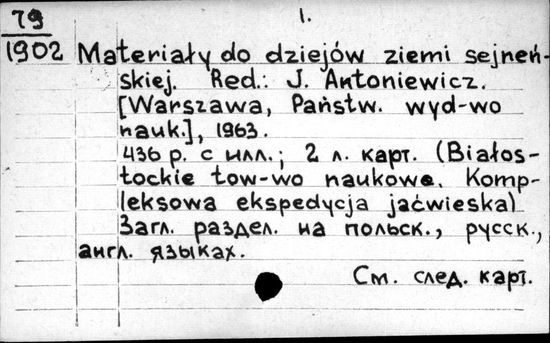 79
1902
1.
Materiały do dziejów ziemi sejneń-
skiej. Red.: J. Antoniewicz.
[Warszawa, Państw. wyd-wo
nauk.], 1963.
436 р. с илл.; 2 л. карт. (Białos-
tockie tow-wo naukowe. Komp-
leksowa ekspedycja jaćwieska)
Загл. раздел. на польск., русск.,
англ. языках.
См. след. карт.